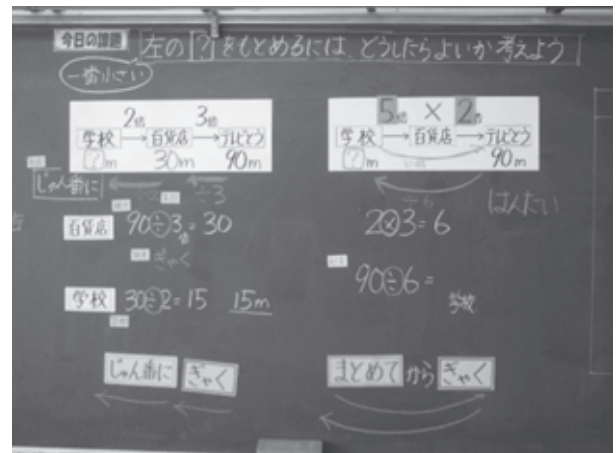 今日の課題 左の[?]をもとめるには、どうしたらよいか考えよう
一番小さい
2倍 3倍
学校→百貨店→テレビとう
?m 30m 90m
じゅん番に ÷3
百貨店 90÷3=30
ぎゃく
学校 30÷2=15 15m
じゅん番に ぎゃく
5倍 × 2倍
学校→百貨店→テレビとう
?m 90m
÷6
はんたい
2×3=6
90÷6=
学校
まとめて から ぎゃく